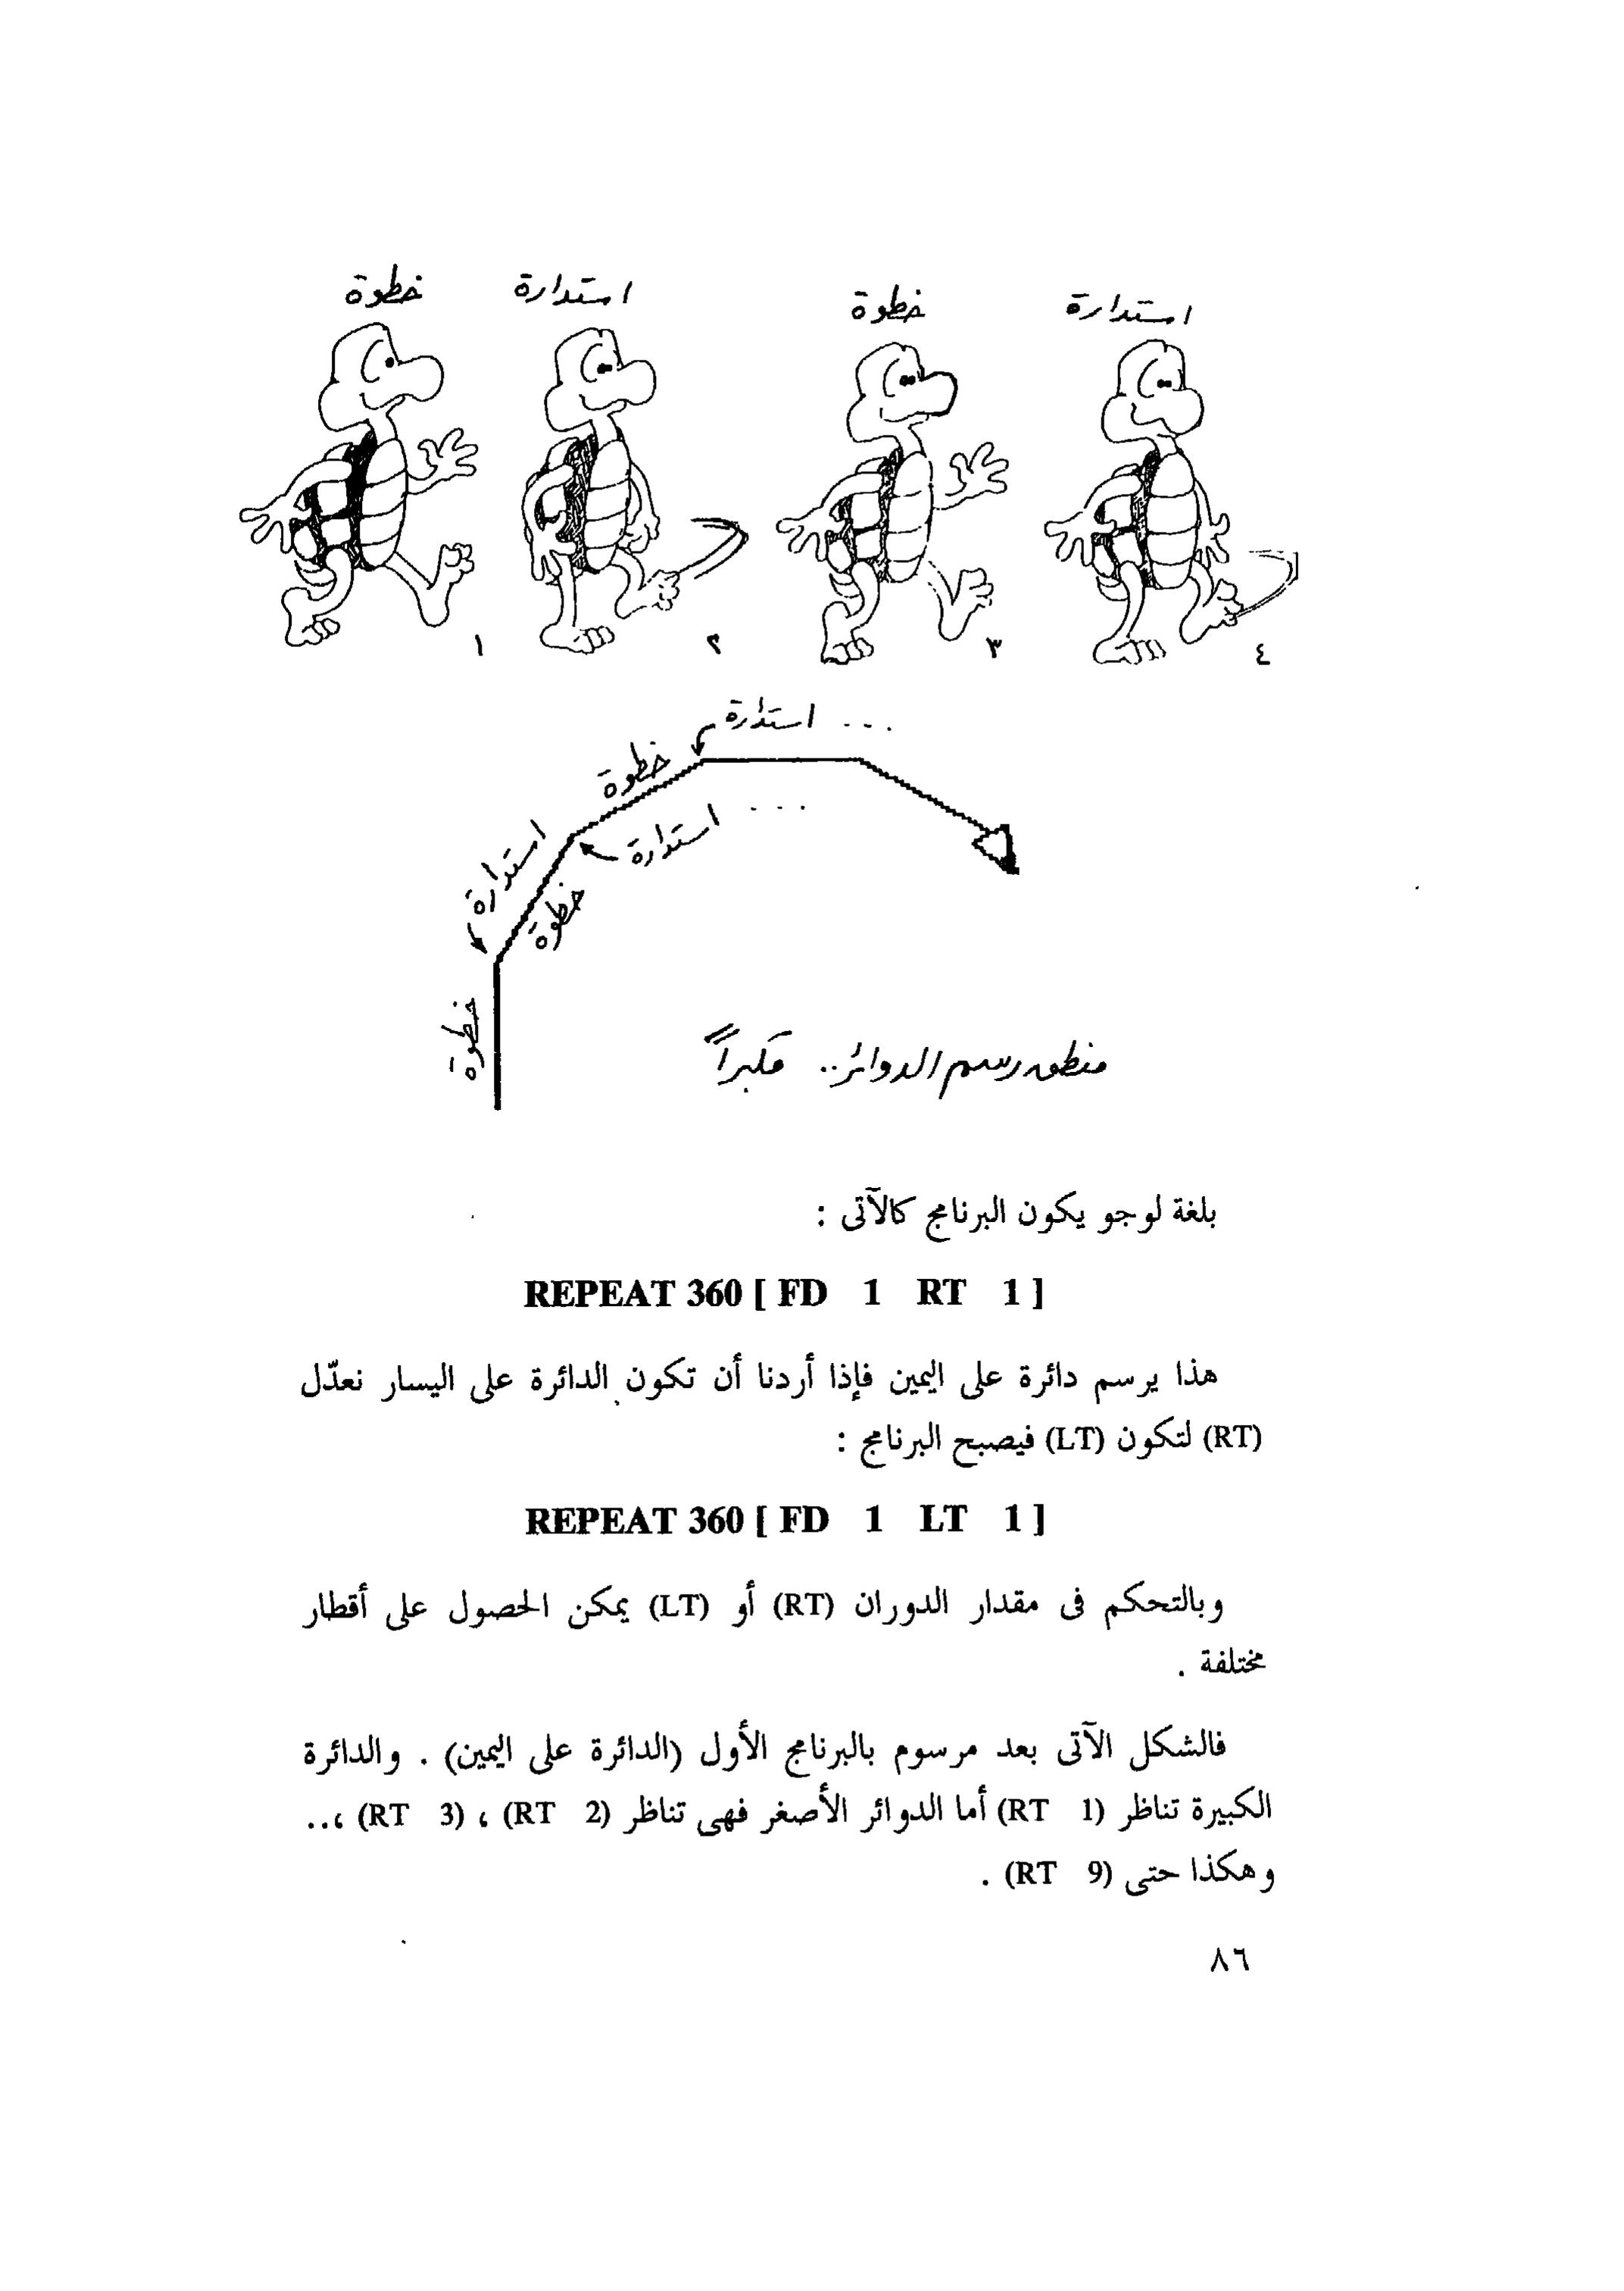 خطوة
استدارة
خطوة
استدارة
١
٢
٣
٤
استدارة ...
خطوة
استدارة ...
استدارة
خطوة
خطوة
منطق رسم الدوائر .. مكبراً
بلغة لوجو يكون البرنامج كالآتى :
REPEAT 360 [ FD 1 RT 1 ]
هذا يرسم دائرة على اليمين فإذا أردنا أن تكون الدائرة على اليسار نعدّل
(RT) لتكون (LT) فيصبح البرنامج :
REPEAT 360 [ FD 1 LT 1 ]
وبالتحكم فى مقدار الدوران (RT) أو (LT) يمكن الحصول على أقطار
مختلفة .
فالشكل الآتى بعد مرسوم بالبرنامج الأول (الدائرة على اليمين) . والدائرة
الكبيرة تناظر (RT 1) أما الدوائر الأصغر فهى تناظر (RT 2) ، (RT 3) ،..
وهكذا حتى (RT 9) .
٨٦